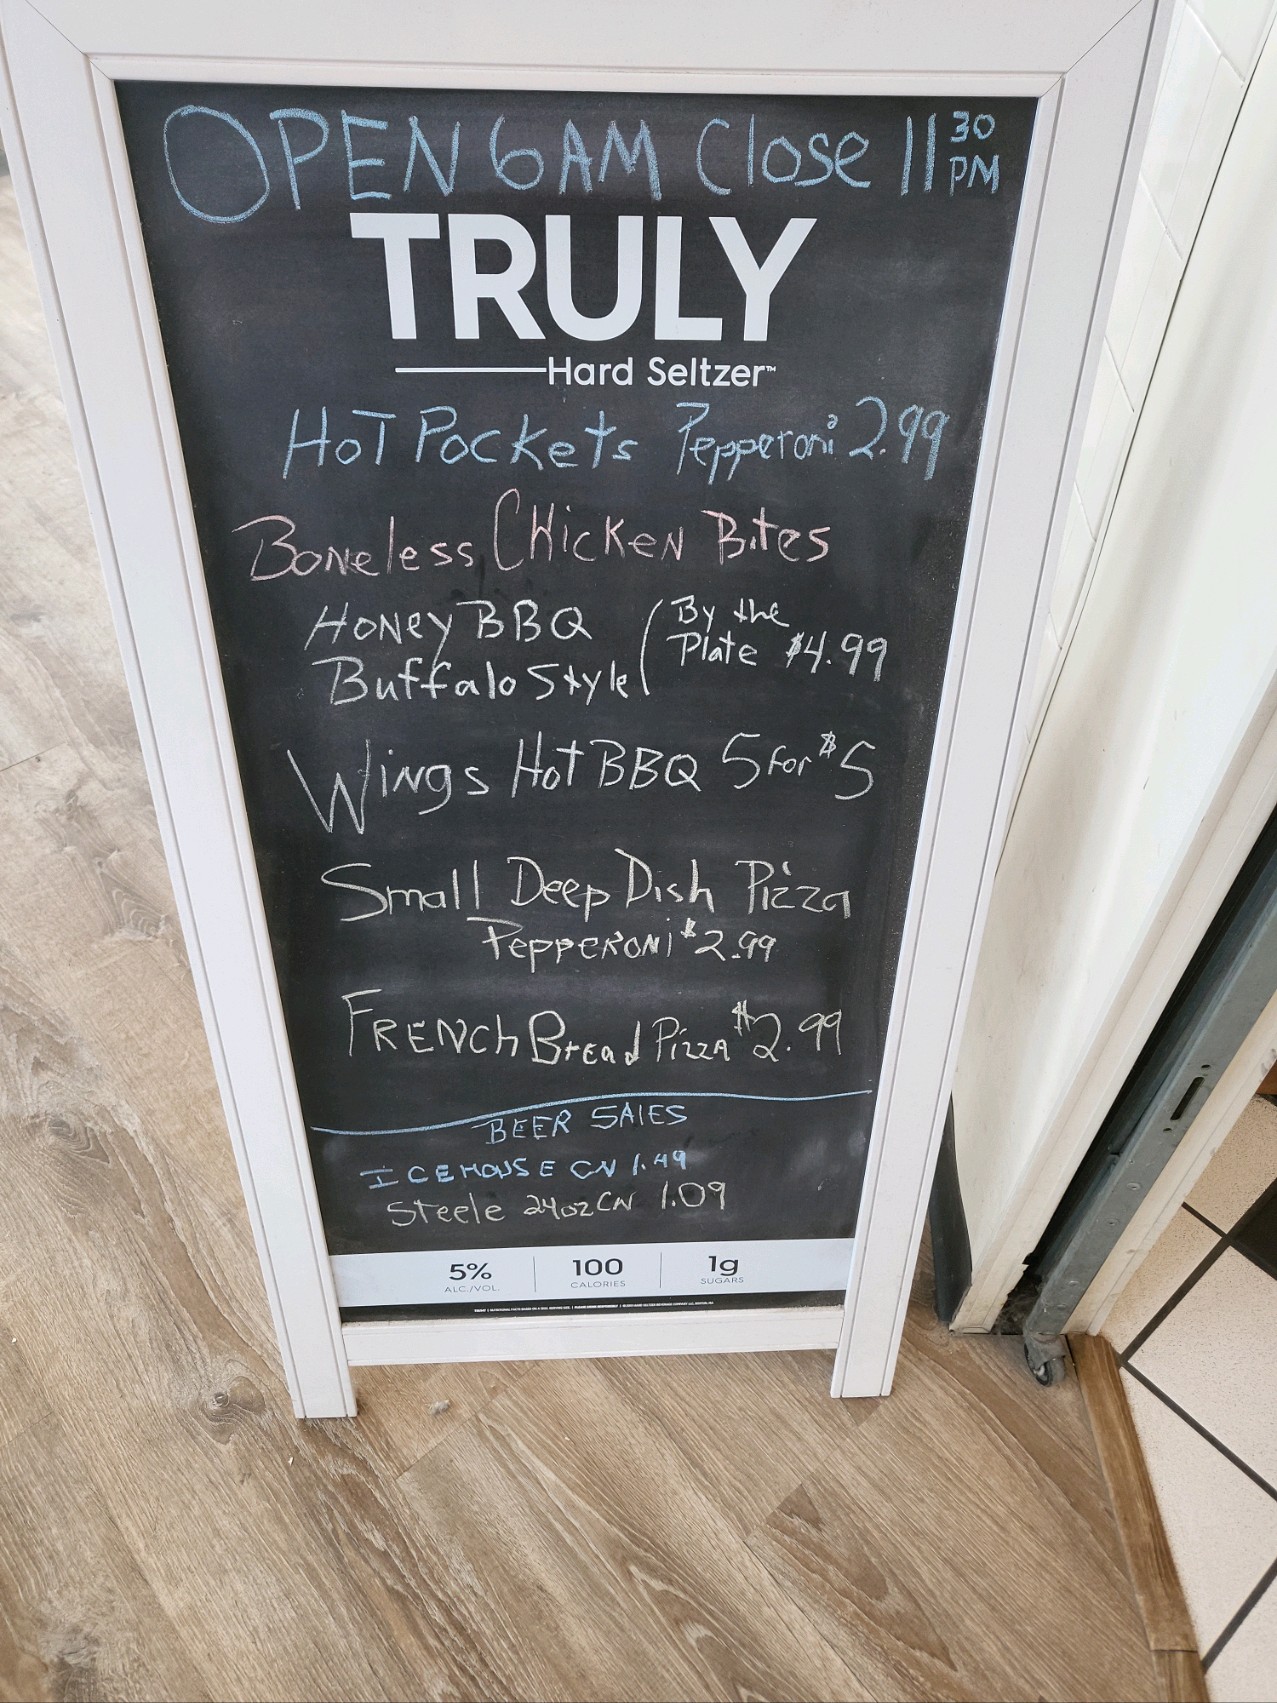 OPEN 6AM Close 11 30 PM
TRULY
Hard Seltzer™
HOT POCKETS Pepperoni 2.99
Boneless CHicken Bites
HONEY BBQ
Buffalo Style
By the
Plate $4.99
Wings Hot BBQ 5 for $5
Small Deep Dish Pizza
PEPPERONi $2.99
FRENCh Bread Pizza $2.99
BEER SALES
ICEHOUSE CN 1.49
Steele 24oz CN 1.09
5% 100 1g
ALC./VOL. CALORIES SUGARS